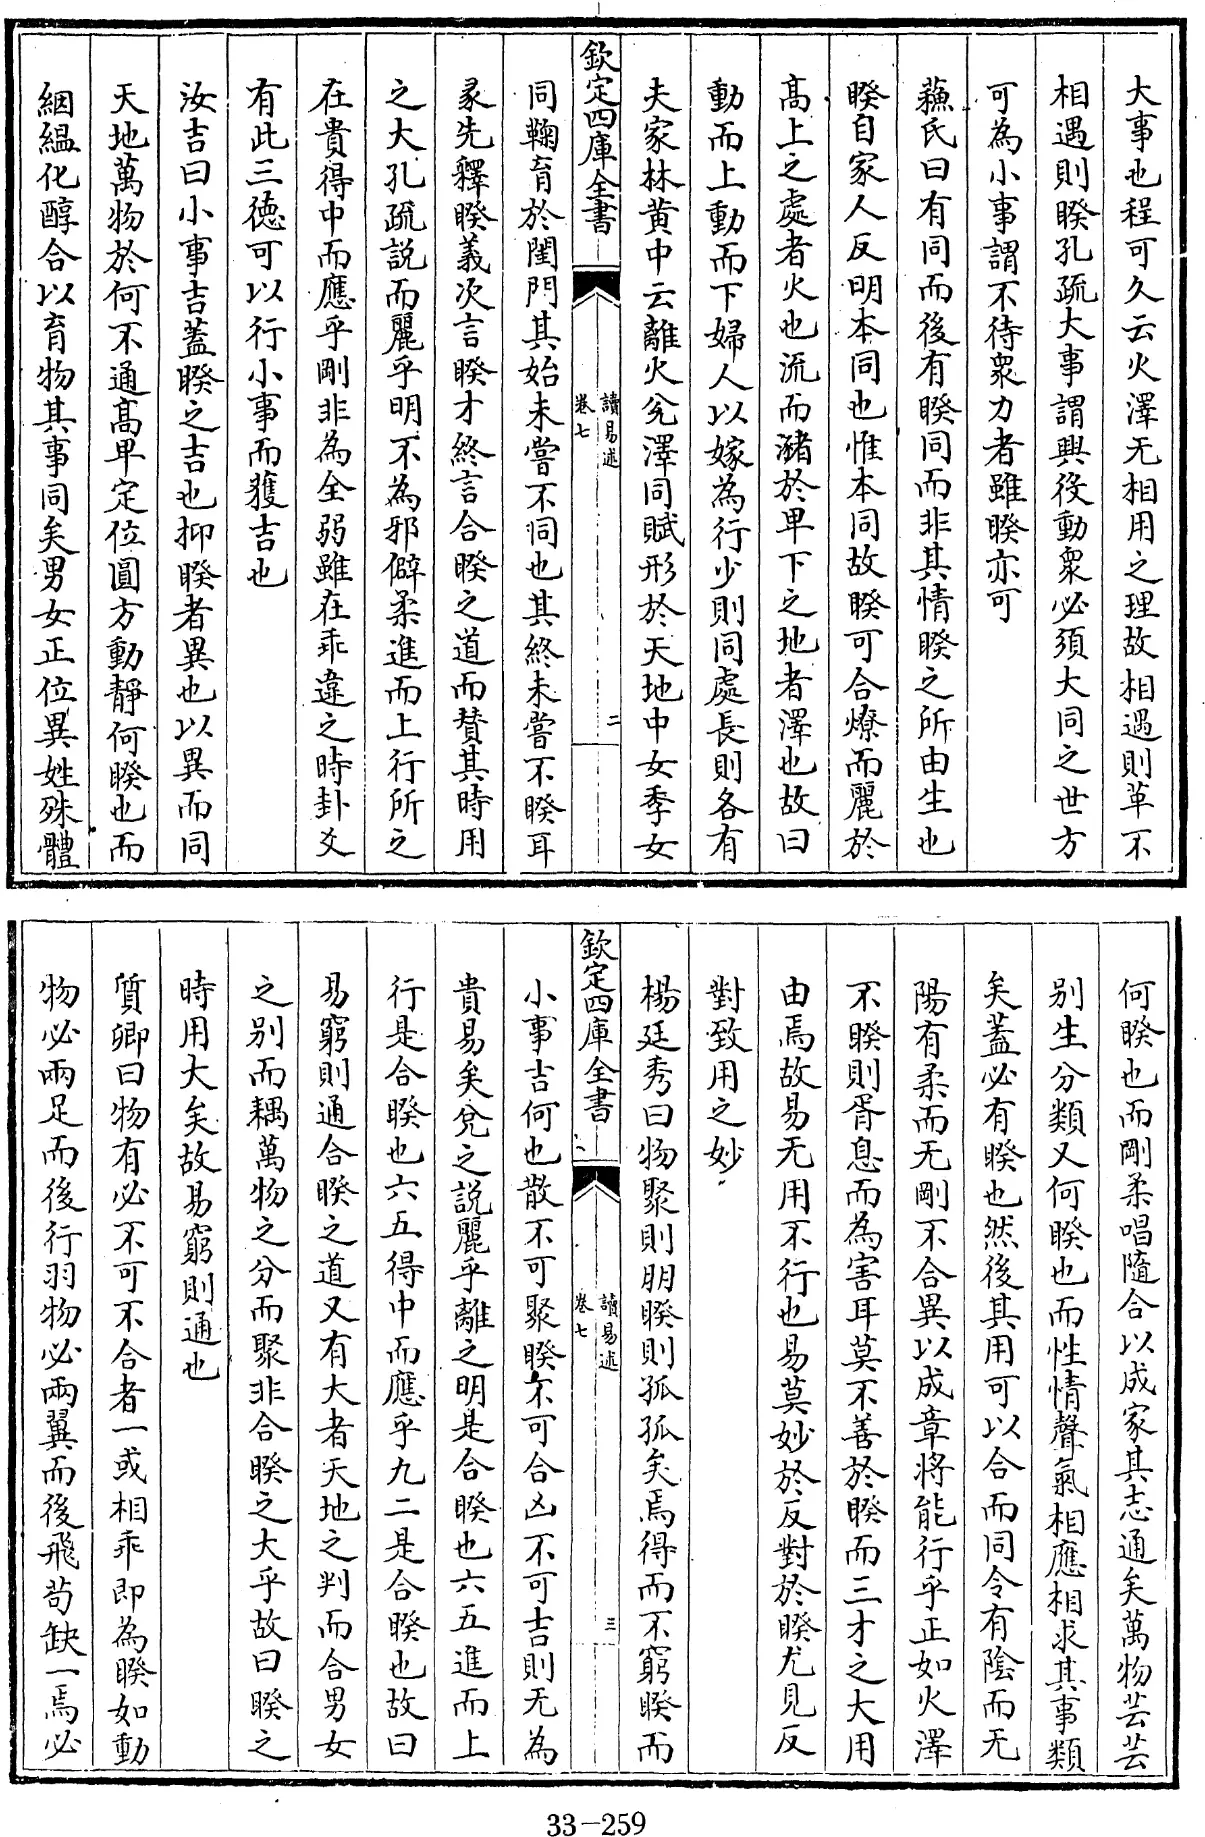 大事也程可久云火澤无相用之理故相遇則革不
相遇則睽孔疏大事謂興役動衆必須大同之世方
可為小事謂不待衆力者雖睽亦可
蘓氏曰有同而後有睽同而非其情睽之所由生也
睽自家人反明本同也惟本同故睽可合燎而麗於
髙上之處者火也流而瀦於卑下之地者澤也故曰
動而上動而下婦人以嫁為行少則同處長則各有
夫家林黄中云離火兊澤同賦形於天地中女季女
欽定四庫全書
讀易述
卷七
二
同鞠育於閨門其始未嘗不同也其終未嘗不睽耳
彖先釋睽義次言睽才終言合睽之道而賛其時用
之大孔疏説而麗乎明不為邪僻柔進而上行所之
在貴得中而應乎剛非為全弱雖在乖違之時卦爻
有此三徳可以行小事而獲吉也
汝吉曰小事吉蓋睽之吉也抑睽者異也以異而同
天地萬物於何不通髙卑定位圓方動靜何睽也而
絪縕化醇合以育物其事同矣男女正位異姓殊體
何睽也而剛柔唱隨合以成家其志通矣萬物芸芸
别生分類又何睽也而性情聲氣相應相求其事類
矣蓋必有睽也然後其用可以合而同令有陰而无
陽有柔而无剛不合異以成章将能行乎正如火澤
不睽則胥息而為害耳莫不善於睽而三才之大用
由焉故易无用不行也易莫妙於反對於睽尤見反
對致用之妙
楊廷秀曰物聚則朋睽則孤孤矣焉得而不窮睽而
欽定四庫全書
讀易述
卷七
三
小事吉何也散不可聚睽不可合凶不可吉則无為
貴易矣兊之説麗乎離之明是合睽也六五進而上
行是合睽也六五得中而應乎九二是合睽也故曰
易窮則通合睽之道又有大者天地之判而合男女
之别而耦萬物之分而聚非合睽之大乎故曰睽之
時用大矣故易窮則通也
質卿曰物有必不可不合者一或相乖即為睽如動
物必兩足而後行羽物必兩翼而後飛苟缺一焉必
33-259